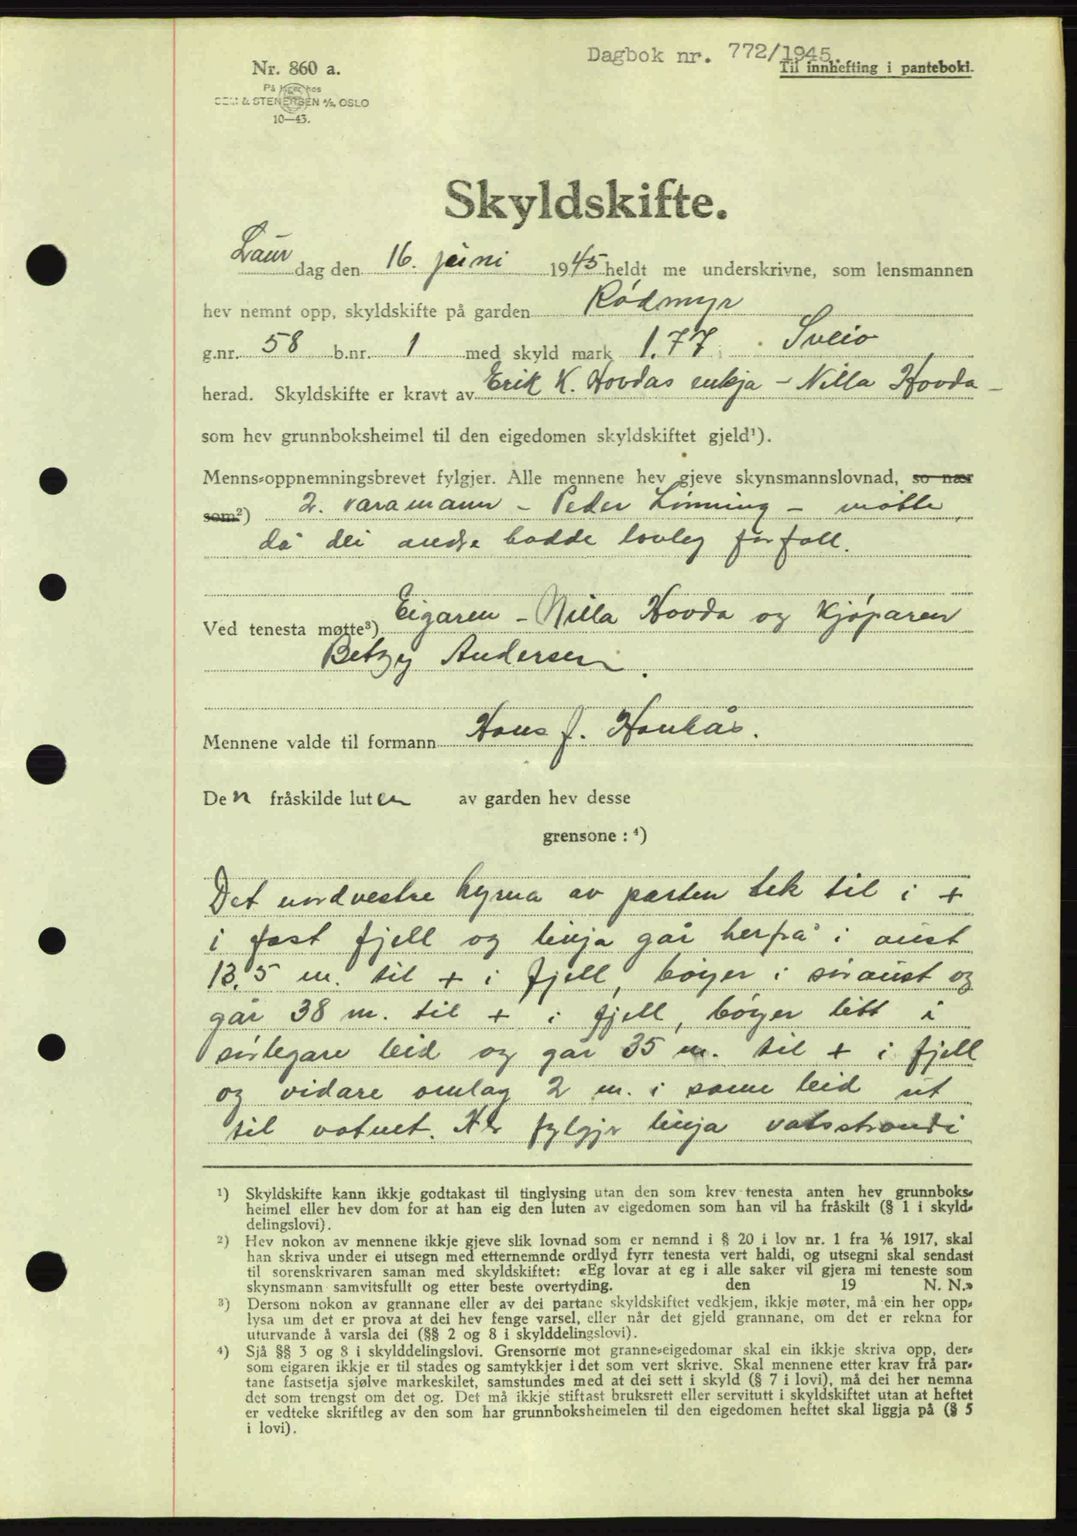 Dagbok nr. 772/1945.
Til innhefting i panteboki.
Nr. 860 a.
På lager hos
SEM & STENERSEN A/S, OSLO
10—43.
Skyldskifte.
Laur dag den 16. juni 1945 heldt me underskrivne, som lensmannen
hev nemnt opp, skyldskifte på garden Rødmyr
g.nr. 58 b.nr. 1 med skyld mark 1.77 Sveio
herad. Skyldskifte er kravt av Erik K. Hovdas enkja - Nilla Hovda -
som hev grunnboksheimel til den eigedomen skyldskiftet gjeld¹).
Menns-oppnemningsbrevet fylgjer. Alle mennene hev gjeve skynsmannslovnad, so nær
som²) 2. varamann - Peder Lønning - møtte,
då dei andre hadde lovleg forfall.
Ved tenesta møtte³) Eigaren - Nilla Hovda og kjøparen
Betzy Andersen.
Mennene valde til formann Hans J. Haukås.
Den fråskilde luten av garden hev desse
grensone : ⁴)
Det nordvestre hyrna av parten tek til i +
i fast fjell og linja går herfrå i aust
13,5 m. til + i fjell, bøyer i søraust og
går 38 m. til + i fjell, bøyer litt i
sørlegare leid og går 35 m. til + i fjell
og vidare omlag 2 m. i same leid ut
til vatnet. Her fylgjer linja vatsstrandi
¹) Skyldskifte kann ikkje godtakast til tinglysing utan den som krev tenesta anten hev grunnboks-
heimel eller hev dom for at han eig den luten av eigedomen som han vil ha fråskilt (§ 1 i skyld-
delingslovi).
²) Hev nokon av mennene ikkje gjeve slik lovnad som er nemnd i § 20 i lov nr. 1 fra 1/6 1917, skal
han skriva under ei utsegn med etternemnde ordlyd fyrr tenesta vert haldi, og utsegni skal sendast
til sorenskrivaren saman med skyldskiftet: «Eg lovar at eg i alle saker vil gjera mi teneste som
skynsmann samvitsfullt og etter beste overtyding. den 19 N. N.»
³) Dersom nokon av grannane eller av dei partane skyldskiftet vedkjem, ikkje møter, må ein her opp-
lysa um det er prova at dei hev fenge varsel, eller når det gjeld grannane, om det er rekna for
uturvande å varsla dei (§§ 2 og 8 i skylddelingslovi).
⁴) Sjå §§ 3 og 8 i skylddelingslovi. Grensorne mot granne-eigedomar skal ein ikkje skriva opp, der-
som eigaren ikkje er til stades og samtykkjer i det som vert skrive. Skal mennene etter krav frå par-
tane fastsetja sjølve markeskilet, samstundes med at dei sett i skyld (§ 7 i lovi), må dei her nemna
det som trengst om det og. Det må ikkje stiftast bruksrett eller servitutt i skyldskiftet utan at heftet
er vedteke skriftleg av den som har grunnboksheimelen til den eigedomen heftet skal liggja på (§ 5
i lovi).